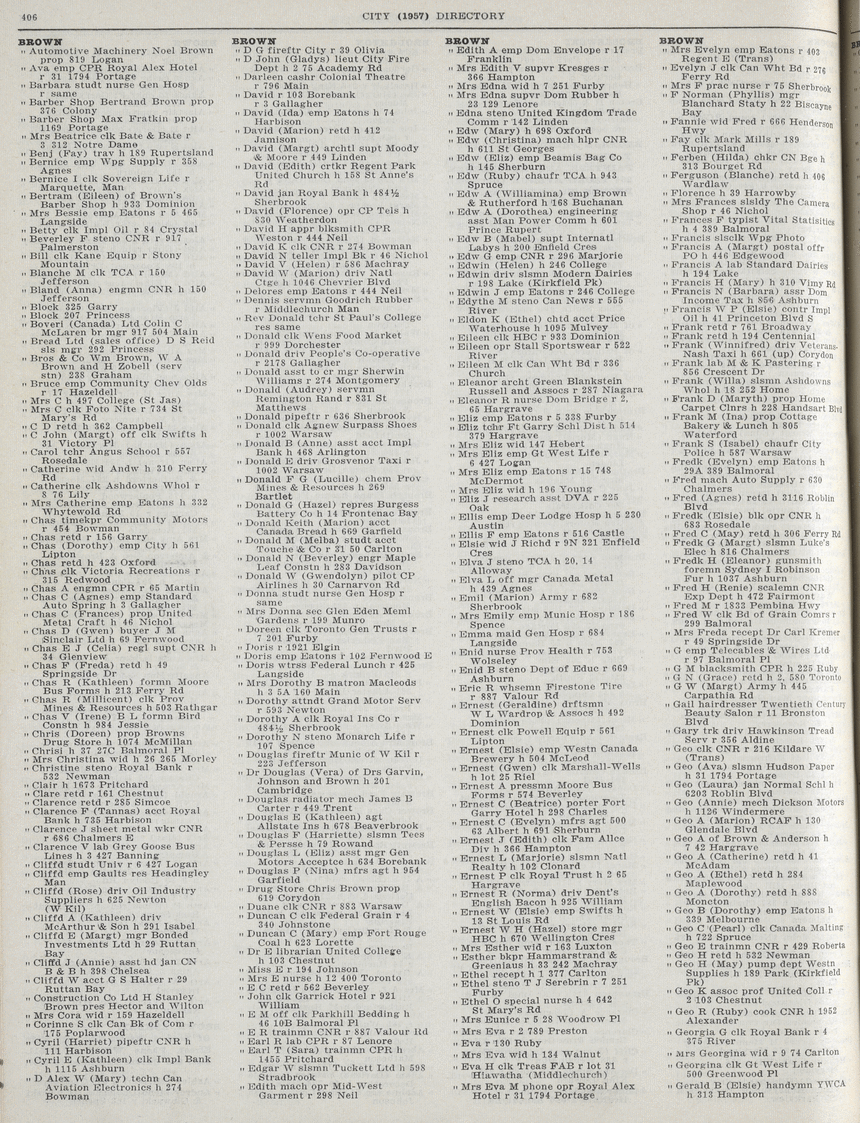 406
CITY (1957) DIRECTORY
BROWN
" Automotive Machinery Noel Brown
prop 819 Logan
" Ava emp CPR Royal Alex Hotel
r 31 1794 Portage
" Barbara studt nurse Gen Hosp
r same
" Barber Shop Bertrand Brown prop
376 Colony
" Barber Shop Max Fratkin prop
1169 Portage
" Mrs Beatrice clk Bate & Bate r
3 312 Notre Dame
" Benj (Fay) trav h 189 Rupertsland
" Bernice emp Wpg Supply r 358
Agnes
" Bernice I clk Sovereign Life r
Marquette, Man
" Bertram (Eileen) of Brown's
Barber Shop h 933 Dominion
" Mrs Bessie emp Eatons r 5 465
Langside
" Betty clk Impl Oil r 84 Crystal
" Beverley F steno CNR r 917
Palmerston
" Bill clk Kane Equip r Stony
Mountain
" Blanche M clk TCA r 150
Jefferson
" Bland (Anna) engmn CNR h 150
Jefferson
" Block 325 Garry
" Block 207 Princess
" Boveri (Canada) Ltd Colin C
McLaren br mgr 917 504 Main
" Bread Ltd (sales office) D S Reid
sls mgr 292 Princess
" Bros & Co Wm Brown, W A
Brown and H Zobell (serv
stn) 238 Graham
" Bruce emp Community Chev Olds
r 17 Hazeldell
" Mrs C h 497 College (St Jas)
" Mrs C clk Foto Nite r 734 St
Mary's Rd
" C D retd h 362 Campbell
" C John (Margt) off clk Swifts h
31 Victory Pl
" Carol tchr Angus School r 557
Rosedale
" Catherine wid Andw h 310 Ferry
Rd
" Catherine clk Ashdowns Whol r
8 76 Lily
" Mrs Catherine emp Eatons h 332
Whytewold Rd
" Chas timekpr Community Motors
r 454 Bowman
" Chas retd r 156 Garry
" Chas (Dorothy) emp City h 561
Lipton
" Chas retd h 423 Oxford
" Chas clk Victoria Recreations r
315 Redwood
" Chas A engmn CPR r 65 Martin
" Chas C (Agnes) emp Standard
Auto Spring h 3 Gallagher
" Chas C (Frances) prop United
Metal Craft h 46 Nichol
" Chas D (Gwen) buyer J M
Sinclair Ltd h 69 Fernwood
" Chas E J (Celia) regl supt CNR h
34 Glenview
" Chas F (Freda) retd h 49
Springside Dr
" Chas R (Kathleen) formn Moore
Bus Forms h 213 Ferry Rd
" Chas R (Millicent) clk Prov
Mines & Resources h 503 Rathgar
" Chas V (Irene) B L formn Bird
Constn h 984 Jessie
" Chris (Doreen) prop Browns
Drug Store h 1074 McMillan
" Chrisi h 37 27C Balmoral Pl
" Mrs Christina wid h 26 265 Morley
" Christine steno Royal Bank r
532 Newman
" Clair h 1673 Pritchard
" Clare retd r 161 Chestnut
" Clarence retd r 285 Simcoe
" Clarence F (Tannas) acct Royal
Bank h 735 Harbison
" Clarence J sheet metal wkr CNR
r 686 Chalmers E
" Clarence V lab Grey Goose Bus
Lines h 3 427 Banning
" Cliffd studt Univ r 6 427 Logan
" Cliffd emp Gaults res Headingley
Man
" Cliffd (Rose) driv Oil Industry
Suppliers h 625 Newton
(W Kil)
" Cliffd A (Kathleen) driv
McArthur & Son h 291 Isabel
" Cliffd E (Margt) mgr Bonded
Investments Ltd h 29 Ruttan
Bay
" Cliffd J (Annie) asst hd jan CN
B & B h 398 Chelsea
" Cliffd W acct G S Halter r 29
Ruttan Bay
" Construction Co Ltd H Stanley
Brown pres Hector and Wilton
" Mrs Cora wid r 159 Hazeldell
" Corinne S clk Can Bk of Com r
175 Poplarwood
" Cyril (Harriet) pipeftr CNR h
111 Harbison
" Cyril E (Kathleen) clk Impl Bank
h 1115 Ashburn
" D Alex W (Mary) techn Can
Aviation Electronics h 274
Bowman
BROWN
" D G fireftr City r 39 Olivia
" D John (Gladys) lieut City Fire
Dept h 2 75 Academy Rd
" Darleen cashr Colonial Theatre
r 796 Main
" David r 103 Borebank
r 3 Gallagher
" David (Ida) emp Eatons h 74
Harbison
" David (Marion) retd h 412
Jamison
" David (Margt) archtl supt Moody
& Moore r 449 Linden
" David (Edith) crtkr Regent Park
United Church h 158 St Anne's
Rd
" David jan Royal Bank h 484½
Sherbrook
" David (Florence) opr CP Tels h
830 Weatherdon
" David H appr blksmith CPR
Weston r 444 Neil
" David K clk CNR r 274 Bowman
" David N teller Impl Bk r 46 Nichol
" David V (Helen) r 586 Machray
" David W (Marion) driv Natl
Ctge h 1046 Chevrier Blvd
" Delores emp Eatons r 444 Neil
" Dennis servmn Goodrich Rubber
r Middlechurch Man
" Rev Donald tchr St Paul's College
res same
" Donald clk Wens Food Market
r 999 Dorchester
" Donald driv People's Co-operative
r 2178 Gallagher
" Donald asst to cr mgr Sherwin
Williams r 274 Montgomery
" Donald (Audrey) servmn
Remington Rand r 831 St
Matthews
" Donald pipeftr r 636 Sherbrook
" Donald clk Agnew Surpass Shoes
r 1002 Warsaw
" Donald B (Anne) asst acct Impl
Bank h 468 Arlington
" Donald E driv Grosvenor Taxi r
1002 Warsaw
" Donald F G (Lucille) chem Prov
Mines & Resources h 269
Bartlet
" Donald G (Hazel) repres Burgess
Battery Co h 14 Frontenac Bay
" Donald Keith (Marion) acct
Canada Bread h 669 Garfield
" Donald M (Melba) studt acct
Touche & Co r 31 50 Carlton
" Donald N (Beverley) engr Maple
Leaf Constn h 283 Davidson
" Donald W (Gwendolyn) pilot CP
Airlines h 30 Carnarvon Rd
" Donna studt nurse Gen Hosp r
same
" Mrs Donna sec Glen Eden Meml
Gardens r 199 Munro
" Doreen clk Toronto Gen Trusts r
7 201 Furby
" Doris r 1921 Elgin
" Doris emp Eatons r 102 Fernwood E
" Doris wtrss Federal Lunch r 425
Langside
" Mrs Dorothy B matron Macleods
h 3 5A 160 Main
" Dorothy attndt Grand Motor Serv
r 593 Newton
" Dorothy A clk Royal Ins Co r
484½ Sherbrook
" Dorothy N steno Monarch Life r
107 Spence
" Douglas fireftr Munic of W Kil r
223 Jefferson
" Dr Douglas (Vera) of Drs Garvin,
Johnson and Brown h 201
Cambridge
" Douglas radiator mech James B
Carter r 449 Trent
" Douglas E (Kathleen) agt
Allstate Ins h 678 Beaverbrook
" Douglas F (Harriette) slsmn Tees
& Persse h 79 Rowand
" Douglas L (Eliz) asst mgr Gen
Motors Acceptce h 634 Borebank
" Douglas P (Nina) mfrs agt h 954
Garfield
" Drug Store Chris Brown prop
619 Corydon
" Duane clk CNR r 883 Warsaw
" Duncan C clk Federal Grain r 4
340 Johnstone
" Duncan C (Mary) emp Fort Rouge
Coal h 623 Lorette
" Dr E librarian United College
h 103 Chestnut
" Miss E r 194 Johnson
" Mrs E nurse h 12 400 Toronto
" E C retd r 562 Beverley
" John clk Garrick Hotel r 921
William
" E M off clk Parkhill Bedding h
46 10B Balmoral Pl
" E R trainmn CNR r 887 Valour Rd
" Earl R lab CPR r 87 Lenore
" Earl T (Sara) trainmn CPR h
1455 Pritchard
" Edgar W slsmn Tuckett Ltd h 598
Stradbrook
" Edith mach opr Mid-West
Garment r 298 Neil
BROWN
" Edith A emp Dom Envelope r 17
Franklin
" Mrs Edith V supvr Kresges r
366 Hampton
" Mrs Edna wid h 7 251 Furby
" Mrs Edna supvr Dom Rubber h
23 129 Lenore
" Edna steno United Kingdom Trade
Comm r 142 Linden
" Edw (Mary) h 698 Oxford
" Edw (Christina) mach hlpr CNR
h 611 St Georges
" Edw (Eliz) emp Beamis Bag Co
h 145 Sherburn
" Edw (Ruby) chaufr TCA h 943
Spruce
" Edw A (Williamina) emp Brown
& Rutherford h 168 Buchanan
" Edw A (Dorothea) engineering
asst Man Power Comm h 601
Prince Rupert
" Edw B (Mabel) supt Internatl
Labys h 200 Enfield Cres
" Edw G emp CNR r 296 Marjorie
" Edwin (Helen) h 246 College
" Edwin driv slsmn Modern Dairies
r 198 Lake (Kirkfield Pk)
" Edwin J emp Eatons r 246 College
" Edythe M steno Can News r 555
River
" Eldon K (Ethel) chtd acct Price
Waterhouse h 1095 Mulvey
" Eileen clk HBC r 933 Dominion
" Eileen opr Stall Sportswear r 522
River
" Eileen M clk Can Wht Bd r 336
Church
" Eleanor archt Green Blankstein
Russell and Assocs r 287 Niagara
" Eleanor R nurse Dom Bridge r 2,
65 Hargrave
" Eliz emp Eatons r 5 338 Furby
" Eliz tchr Ft Garry Schl Dist h 514
379 Hargrave
" Mrs Eliz wid 147 Hebert
" Mrs Eliz emp Gt West Life r
6 427 Logan
" Mrs Eliz emp Eatons r 15 748
McDermot
" Mrs Eliz wid h 196 Young
" Eliz J research asst DVA r 225
Oak
" Ellis emp Deer Lodge Hosp h 5 230
Austin
" Ellis F emp Eatons r 516 Castle
" Elsie wid J Richd r 9N 321 Enfield
Cres
" Elva J steno TCA h 20, 14
Alloway
" Elva L off mgr Canada Metal
h 439 Agnes
" Emil (Marion) Army r 682
Sherbrook
" Mrs Emily emp Munic Hosp r 186
Spence
" Emma maid Gen Hosp r 684
Langside
" Enid nurse Prov Health r 753
Wolseley
" Enid B steno Dept of Educ r 669
Ashburn
" Eric R whsemn Firestone Tire
r 887 Valour Rd
" Ernest (Geraldine) drftsmn
W L Wardrop & Assocs h 492
Dominion
" Ernest clk Powell Equip r 561
Lipton
" Ernest (Elsie) emp Westn Canada
Brewery h 504 McLeod
" Ernest (Gwen) clk Marshall-Wells
h lot 25 Riel
" Ernest A pressmn Moore Bus
Forms r 574 Beverley
" Ernest C (Beatrice) porter Fort
Garry Hotel h 298 Charles
" Ernest C (Evelyn) mfrs agt 500
63 Albert h 691 Sherburn
" Ernest J (Edith) clk Fam Allce
Div h 366 Hampton
" Ernest L (Marjorie) slsmn Natl
Realty h 102 Clonard
" Ernest P clk Royal Trust h 2 65
Hargrave
" Ernest R (Norma) driv Dent's
English Bacon h 925 William
" Ernest W (Elsie) emp Swifts h
13 St Louis Rd
" Ernest W H (Hazel) store mgr
HBC h 670 Wellington Cres
" Mrs Esther wid r 163 Luxton
" Esther bkpr Hammarstrand &
Greenlaus h 33 242 Machray
" Ethel recept h 1 377 Carlton
" Ethel steno T J Serebrin r 7 251
Furby
" Ethel O special nurse h 4 642
St Mary's Rd
" Mrs Eunice r 5 28 Woodrow Pl
" Mrs Eva r 2 789 Preston
" Eva r 130 Ruby
" Mrs Eva wid h 134 Walnut
" Eva H clk Treas FAB r lot 31
Hiawatha (Middlechurch)
" Mrs Eva M phone opr Royal Alex
Hotel r 31 1794 Portage
BROWN
" Mrs Evelyn emp Eatons r 403
Regent E (Trans)
" Evelyn J clk Can Wht Bd r 276
Ferry Rd
" Mrs F prac nurse r 75 Sherbrook
" F Norman (Phyllis) mgr
Blanchard Staty h 22 Biscayne
Bay
" Fannie wid Fred r 666 Henderson
Hwy
" Fay clk Mark Mills r 189
Rupertsland
" Ferben (Hilda) chkr CN Bge h
313 Bourget Rd
" Ferguson (Blanche) retd h 406
Wardlaw
" Florence h 39 Harrowby
" Mrs Frances slsldy The Camera
Shop r 46 Nichol
" Frances F typist Vital Statisitics
h 4 389 Balmoral
" Francis slsclk Wpg Photo
" Francis A (Margt) postal offr
PO h 446 Edgewood
" Francis A lab Standard Dairies
h 194 Lake
" Francis H (Mary) h 310 Vimy Rd
" Francis N (Barbara) assr Dom
Income Tax h 856 Ashburn
" Francis W P (Elsie) contr Impl
Oil h 41 Princeton Blvd S
" Frank retd r 761 Broadway
" Frank retd h 194 Centennial
" Frank (Winnifred) driv Veterans-
Nash Taxi h 661 (up) Corydon
" Frank lab M & K Pastering r
856 Crescent Dr
" Frank (Willa) slsmn Ashdowns
Whol h 18 252 Home
" Frank D (Maryth) prop Home
Carpet Clnrs h 228 Handsart Blvd
" Frank M (Ina) prop Cottage
Bakery & Lunch h 805
Waterford
" Frank S (Isabel) chaufr City
Police h 587 Warsaw
" Fredk (Evelyn) emp Eatons h
29A 389 Balmoral
" Fred mach Auto Supply r 630
Chalmers
" Fred (Agnes) retd h 3116 Roblin
Blvd
" Fredk (Elsie) blk opr CNR h
683 Rosedale
" Fred C (May) retd h 306 Ferry Rd
" Fredk G (Margt) slsmn Luke's
Elec h 816 Chalmers
" Fredk H (Eleanor) gunsmith
foremn Sydney I Robinson
Fur h 1037 Ashburn
" Fred H (Renie) scalemn CNR
Exp Dept h 472 Fairmont
" Fred M r 1833 Pembina Hwy
" Fred W clk Bd of Grain Comrs r
299 Balmoral
" Mrs Freda recept Dr Carl Kremer
r 49 Springside Dr
" G emp Telecables & Wires Ltd
r 97 Balmoral Pl
" G M blacksmith CPR h 225 Ruby
" G N (Grace) retd h 2, 580 Toronto
" G W (Margt) Army h 445
Carpathia Rd
" Gail hairdresser Twentieth Century
Beauty Salon r 11 Bronston
Blvd
" Gary trk driv Hawkinson Tread
Serv r 356 Aldine
" Geo clk CNR r 216 Kildare W
(Trans)
" Geo (Ava) slsmn Hudson Paper
h 31 1794 Portage
" Geo (Laura) jan Normal Schl h
6203 Roblin Blvd
" Geo (Annie) mech Dickson Motors
h 1126 Windermere
" Geo A (Marion) RCAF h 130
Glendale Blvd
" Geo A of Brown & Anderson h
7 42 Hargrave
" Geo A (Catherine) retd h 41
McAdam
" Geo A (Ethel) retd h 284
Maplewood
" Geo A (Dorothy) retd h 888
Moncton
" Geo B (Dorothy) emp Eatons h
339 Melbourne
" Geo C (Pearl) clk Canada Malting
h 722 Spruce
" Geo E trainmn CNR r 429 Roberta
" Geo H retd h 532 Newman
" Geo H (May) pump dept Westn
Supplies h 189 Park (Kirkfield
Pk)
" Geo K assoc prof United Coll r
2 103 Chestnut
" Geo R (Ruby) cook CNR h 1952
Alexander
" Georgia G clk Royal Bank r 4
375 River
" Mrs Georgina wid r 9 74 Carlton
" Georgina clk Gt West Life r
500 Greenwood Pl
" Gerald B (Elsie) handymn YWCA
h 313 Hampton